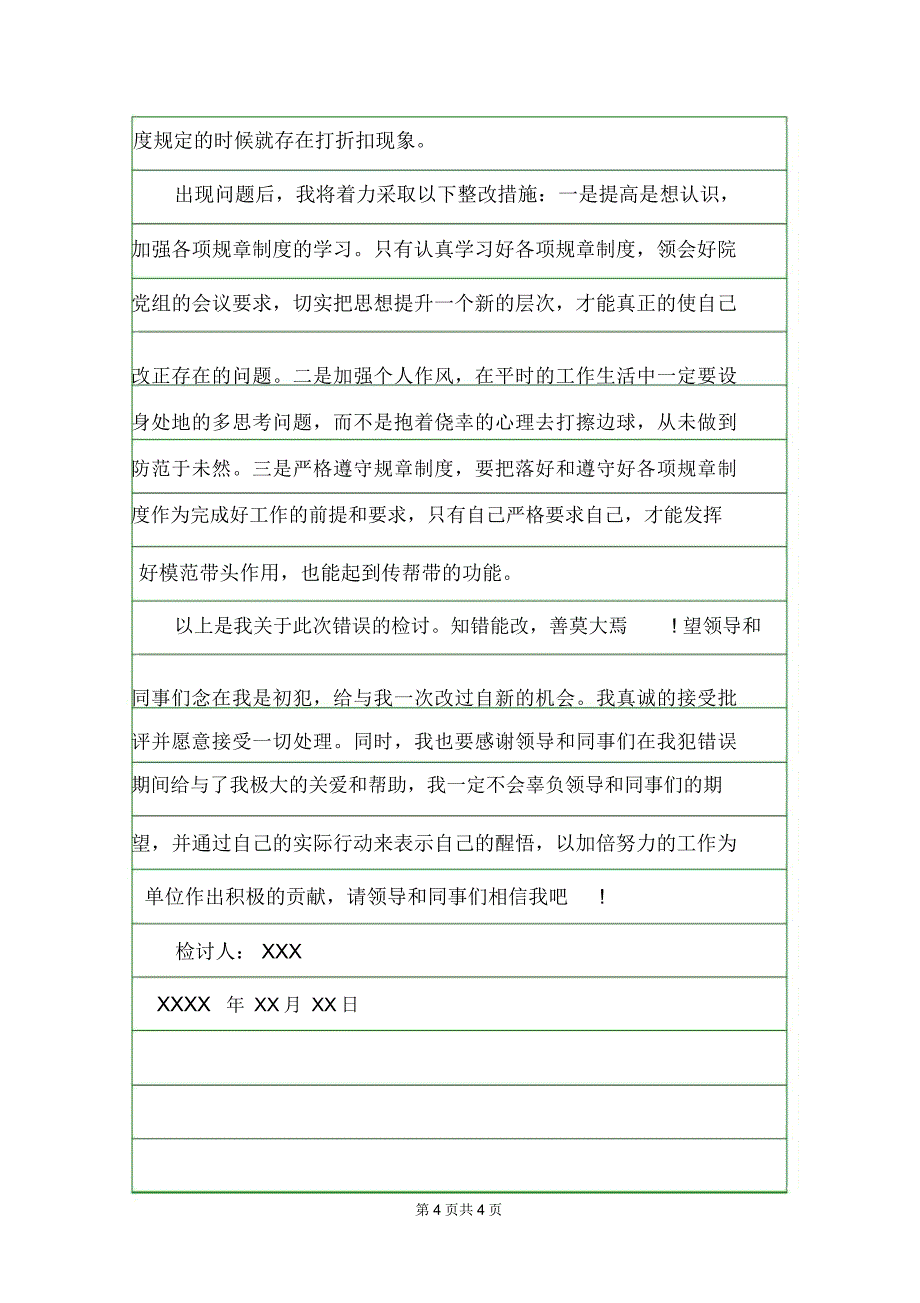 度规定的时候就存在打折扣现象。
出现问题后，我将着力采取以下整改措施：一是提高是想认识，
加强各项规章制度的学习。只有认真学习好各项规章制度，领会好院
党组的会议要求，切实把思想提升一个新的层次，才能真正的使自己
改正存在的问题。二是加强个人作风，在平时的工作生活中一定要设
身处地的多思考问题，而不是抱着侥幸的心理去打擦边球，从未做到
防范于未然。三是严格遵守规章制度，要把落好和遵守好各项规章制
度作为完成好工作的前提和要求，只有自己严格要求自己，才能发挥
好模范带头作用，也能起到传帮带的功能。
以上是我关于此次错误的检讨。知错能改，善莫大焉 ！望领导和
同事们念在我是初犯，给与我一次改过自新的机会。我真诚的接受批
评并愿意接受一切处理。同时，我也要感谢领导和同事们在我犯错误
期间给与了我极大的关爱和帮助，我一定不会辜负领导和同事们的期
望，并通过自己的实际行动来表示自己的醒悟，以加倍努力的工作为
单位作出积极的贡献，请领导和同事们相信我吧 ！
检讨人： XXX
XXXX 年 XX月 XX日
第 4 页共 4 页